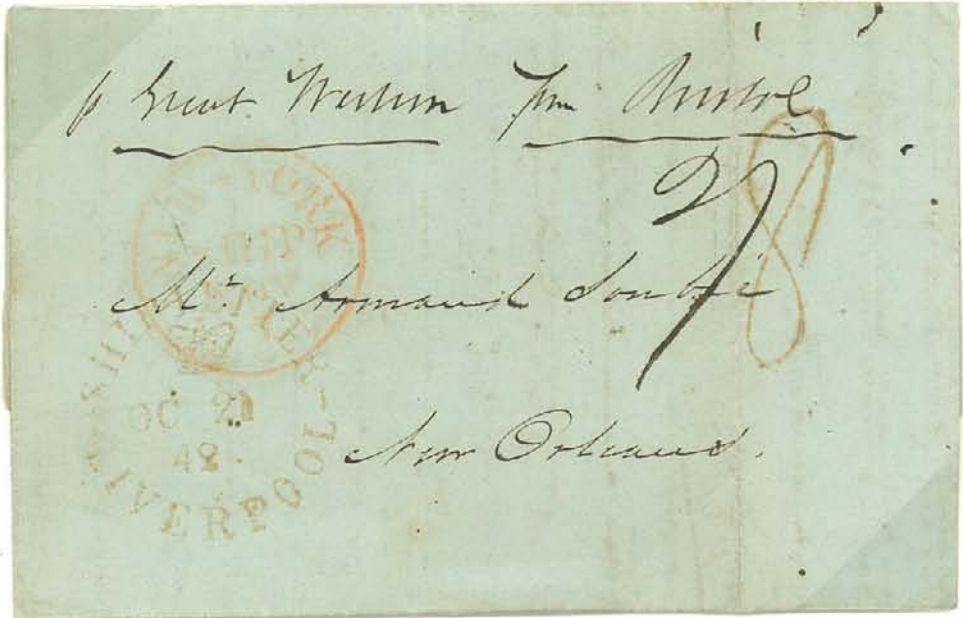 p Great Western from Bristol
27
8
NEW-YORK
SHIP
Mr. Armand
SHIP LETTER
OC 21
42
LIVERPOOL
New Orleans.